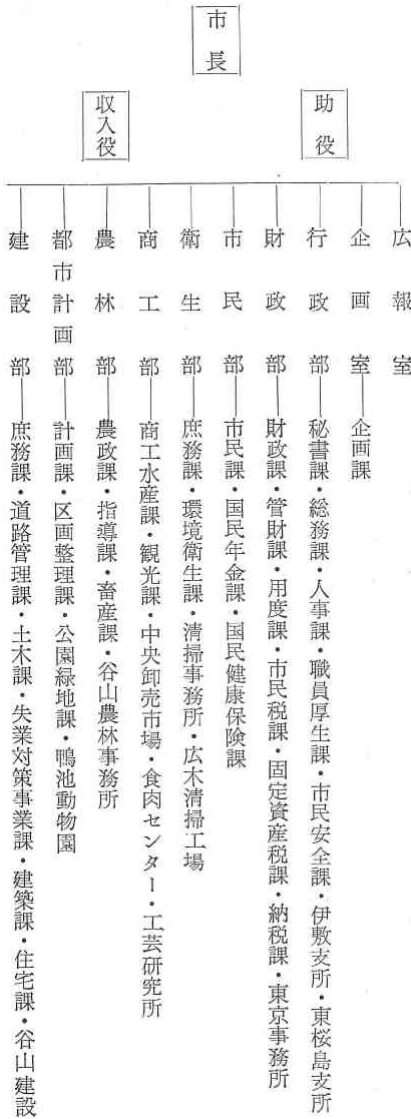 市長
助役
収入役
広報室
企画室 企画課
行政部 秘書課・総務課・人事課・職員厚生課・市民安全課・伊敷支所・東桜島支所
財政部 財政課・管財課・用度課・市民税課・固定資産税課・納税課・東京事務所
市民部 市民課・国民年金課・国民健康保険課
衛生部 庶務課・環境衛生課・清掃事務所・広木清掃工場
商工部 商工水産課・観光課・中央卸売市場・食肉センター・工芸研究所
農林部 農政課・指導課・畜産課・谷山農林事務所
都市計画部 計画課・区画整理課・公園緑地課・鴨池動物園
建設部 庶務課・道路管理課・土木課・失業対策事業課・建築課・住宅課・谷山建設